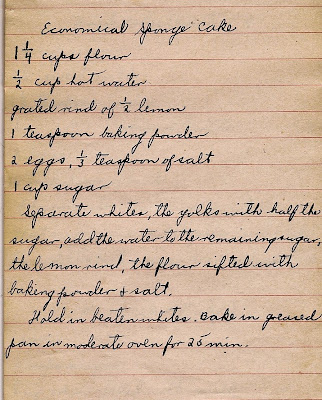 Economical Sponge Cake
1 1/4 cups flour
1/2 cup hot water
grated rind of 1/2 lemon
1 teaspoon baking powder
2 eggs, 1/3 teaspoon of salt
1 cup sugar
Separate whites, the yolks with half the
sugar, add the water to the remaining sugar,
the lemon rind, the flour sifted with
baking powder & salt.
Hold in beaten whites. Bake in greased
pan in moderate oven for 25 min.